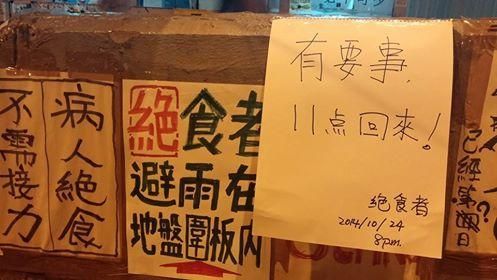 病人絕食
不需接力
絕食者
避雨在
地盤圍板內
有要事,
11点回來!
絕食者
2014/10/24
8pm.